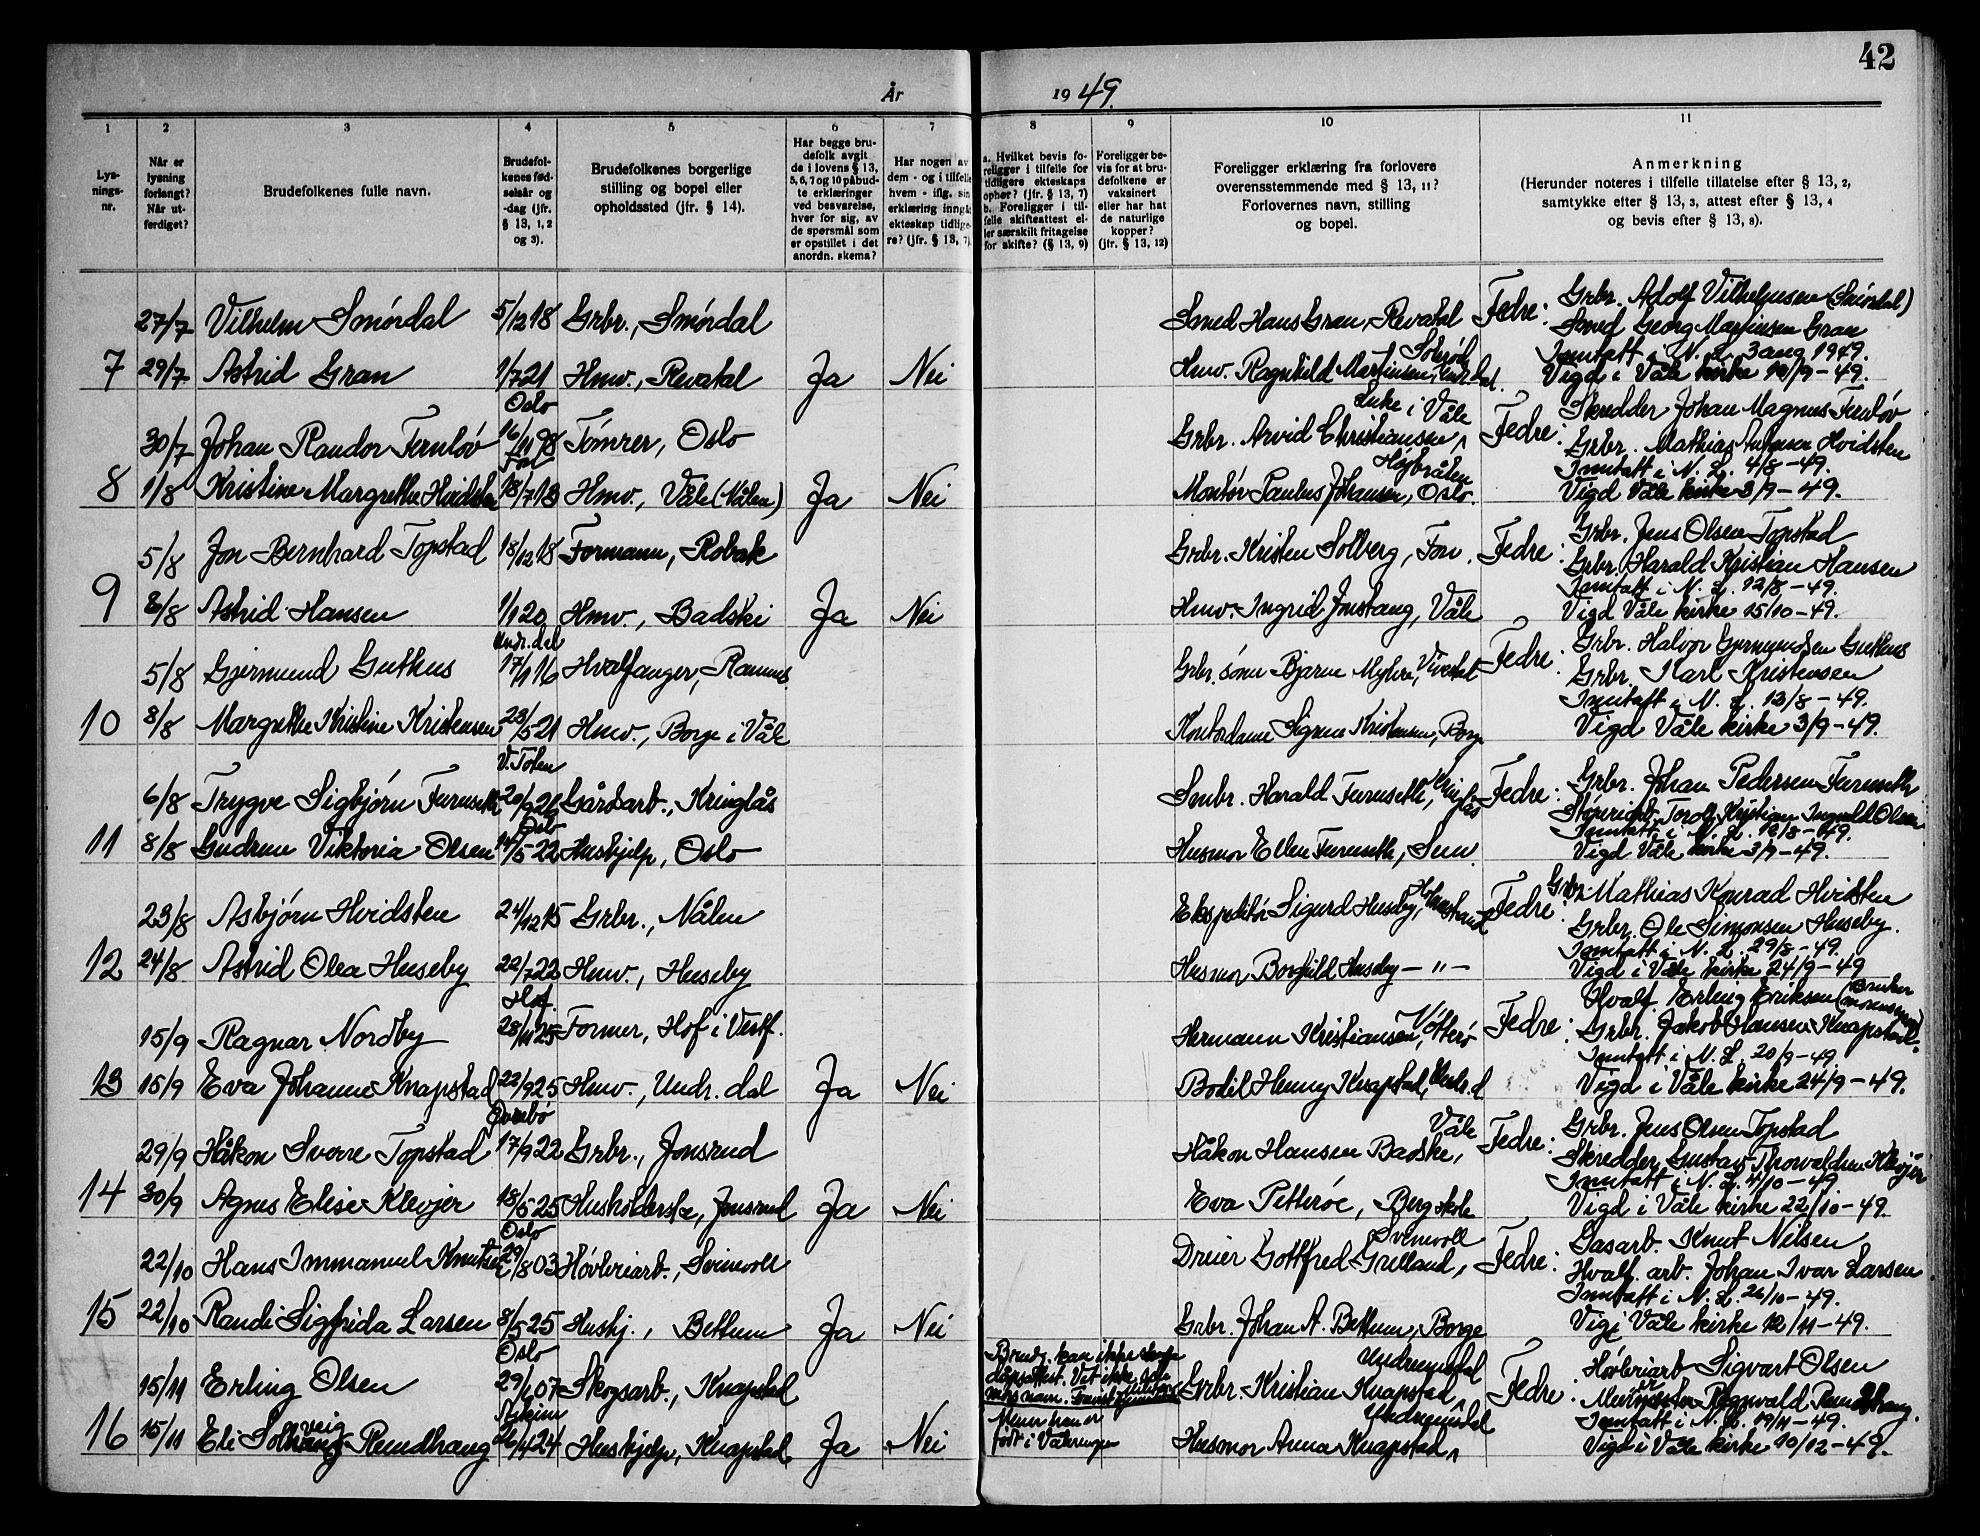 42
År 1949.
1 2 3 4 5 6 7 8 9 10 11
Lys-
nings-
nr.
Når er
lysning
forlangt?
Når ut-
ferdiget?
Brudefolkenes fulle navn.
Brudefol-
kenes fød-
selsår og
-dag (jfr.
§ 13, 1, 2
og 3).
Brudefolkenes borgerlige
stilling og bopel eller
opholdssted (jfr. § 14).
Har begge bru-
defolk avgit
de i lovens § 13,
5, 6, 7 og 10 påbud-
te erklæringer
ved besvarelse,
hver for sig, av
de spørsmål som
er opstillet i det
anordn. skema?
Har nogen av
dem - og i tilfelle
hvem - iflg. sin
erklæring inngå
ekteskap tidlige-
re? (jfr. § 13, 7).
a. Hvilket bevis fo-
religger i tilfelle for
tidligere ekteskaps
ophør? (jfr. § 13, 7)
b. Foreligger i til-
felle skifteattest el-
ler særskilt fritagelse
for skifte? (§ 13, 9)
Foreligger be-
vis for at bru-
defolkene er
vaksinert
eller har hat
de naturlige
kopper?
(jfr. § 13, 12)
Foreligger erklæring fra forlovere
overensstemmende med § 13, 11?
Forlovernes navn, stilling
og bopel.
Anmerkning
(Herunder noteres i tilfelle tillatelse efter § 13, 2,
samtykke efter § 13, 3, attest efter § 13, 4
og bevis efter § 13, 8).
27/7 Vilhelm Smørdal 5/12 18 Grbr., Smørdal Smed Hans Gran, Revatal Fedre: Grbr. Adolf Vilhelmsen (Smørdal)
Smed Georg Martinsen Gran
Inntatt i N. L. 3 aug 1949.
7 29/7 Astrid Gran 1/7 21 Hmv., Revatal Ja Nei Hmv. Ragnhild Martinsen, Undr.dal. Vigd i Våle kirke 10/9-49.
Oslo
30/7 Johan Randor Fernløv 16/11 98 Tømrer, Oslo Grbr. Arvid Christiansen, i Våle Fedre: Skredder Johan Magnus Fernløv
Grbr. Mathias Hvidsten
Inntatt i N. L. 4/8-49.
Fon
8 1/8 Kristine Margrethe Hvidsten 18/7 13 Hmv., Våle (Nålen) Ja Nei Montør Paulus Johansen, Oslo. Vigd Våle kirke 3/9-49.
5/8 Jon Bernhard Topstad 18/12 18 Formann, Robak Grbr. Kristen Solberg, Fon. Fedre: Grbr. Jens Olsen Topstad
Grbr. Harald Kristian Hansen
Inntatt i N. L. 12/8-49.
9 8/8 Astrid Hansen 1/1 20 Hmv., Badski Ja Nei Hmv. Ingrid Jonstang, Våle Vigd Våle kirke 15/10-49.
Undr.dal
5/8 Gjermund Guthus 17/1 16 Hvalfanger, Ramnes. Grbr. sønn Bjarne Myhre, Fedre: Grbr. Halvor Gjermundsen Guthus
Grbr. Karl Kristensen
Inntatt i N. L. 13/8-49.
10 8/8 Margrethe Kristine Kristensen 23/5-21 Hmv., Borge i Våle Kontordame Sigrun Kristensen, Borge Vigd Våle kirke 3/9-49.
V. Toten
6/8 Trygve Sigbjørn Furuseth 20/9 26 Gårdsarb., Kringlås Småbr. Harald Furuseth, Kringlås Fedre: Grbr. Johan Pedersen Furuseth
Kristian Ingvald Olsen
Inntatt i N. L. 12/8-49.
Oslo
11 8/8 Gudrun Viktoria Olsen 14/5-22 Hushjelp, Oslo Husmor Ellen Furuseth, Sem. Vigd Våle kirke 3/9-49.
23/8 Asbjørn Hvidsten 24/12 15 Grbr., Nålen Ekspeditør Sigurd Huseby, Holmestrand Fedre: Grbr. Mathias Konrad Hvidsten
Grbr. Ole Simonsen Huseby.
Inntatt i N. L. 29/8-49.
12 24/8 Astrid Olea Huseby 22/7 22 Hmv., Huseby Husmor Borghild Huseby - " - Vigd i Våle kirke 24/9-49
Hof
15/9 Ragnar Nordby 28/11 25 Former, Hof i Vestf. Hermann Kristiansen, Fedre: Hvalf. Erling Eriksen (Bruker
Grbr. Jakob Hansen Knapstad.
Inntatt i N. L. 20/9-49.
13 15/9 Eva Johanne Knapstad 22/9 25 Hmv., Undr.dal Ja Nei Bodil Henny Knapstad, Vigd i Våle kirke 24/9-49.
Øvrebø
29/9 Håkon Sverre Topstad 17/9 22 Grbr., Jonsrud Håkon Hansen Badske, Våle Fedre: Grbr. Jens Olsen Topstad
Skredder Gustav Thorvaldsen Klevjer
Inntatt i N. L. 4/10-49
14 30/9 Agnes Elise Klevjer 18/5 25 Husholderske, Jonsrud Ja Nei Eva Petterøe, Berg skole Vigd i Våle kirke 22/10-49.
Oslo
22/10 Hans Immanuel Knutsen 29/8 03 Høvleriarb., Svinevoll Dreier Gottfred Grelland, Svinevoll Fedre: Gasarb. Knut Nilsen
Hvalf. arb. Johan Ivar Larsen
Inntatt i N. L. 26/10-49.
15 22/10 Randi Sigfrida Larsen 8/5 25 Hushj., Bettum Ja Nei Grbr. Johan A. Bettum, Borge Vigd i Våle kirke 12/11-49.
Oslo
15/11 Erling Olsen 29/1 07 Skogsarb., Knapstad Brudg. kan ikke
dåpsattest. Vet ikke
Mener han er
født i Vålerengen
Grbr. Kristian Knapstad, Undrumsdal Fedre: Høvleriarb Sigvart Olsen
Ragnvald Rundhaug.
Inntatt i N. L. 19/11-49.
Askim
16 15/11 Eli Solveig Rundhaug 26/4 24 Hushjelp, Knapstad Ja Nei Husmor Anna Knapstad, Undrumsdal Vigd i Våle kirke 10/12-49.